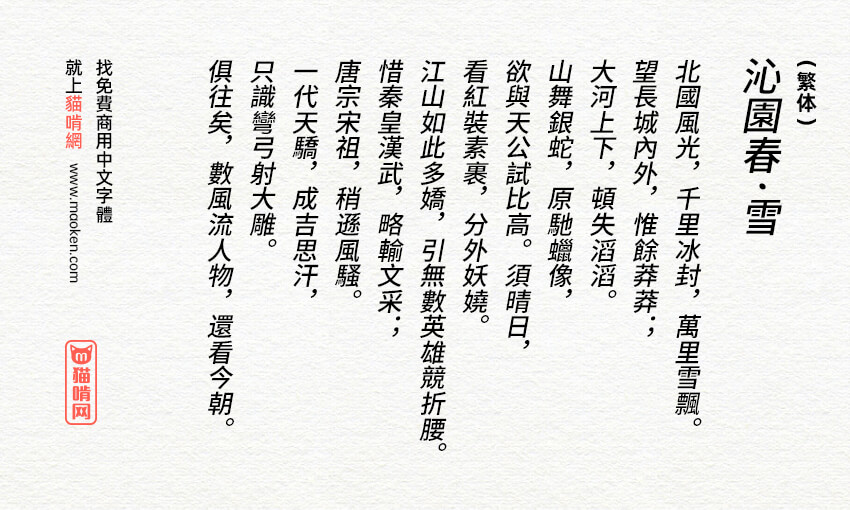 (繁体)
沁園春·雪
北國風光，千里冰封，萬里雪飄。
望長城內外，惟餘莽莽；
大河上下，頓失滔滔。
山舞銀蛇，原馳蠟像，
欲與天公試比高。須晴日，
看紅裝素裹，分外妖嬈。
江山如此多嬌，引無數英雄競折腰。
惜秦皇漢武，略輸文采；
唐宗宋祖，稍遜風騷。
一代天驕，成吉思汗，
只識彎弓射大雕。
俱往矣，數風流人物，還看今朝。
找免費商用中文字體
就上貓啃網 www.mooken.com
m
猫啃网